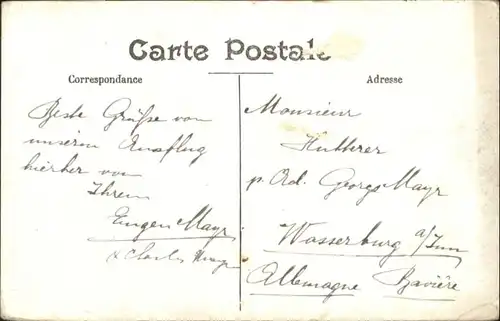 Carte Postale
Correspondance
Adresse
Beste Grüße von
unserem Ausflug
hierher von
Ihrem
Eugen Mayr
x Charles
Monsieur
Hutterer
p. Ad. Georg Mayr
Wasserburg a/Inn
Allemagne Bavière